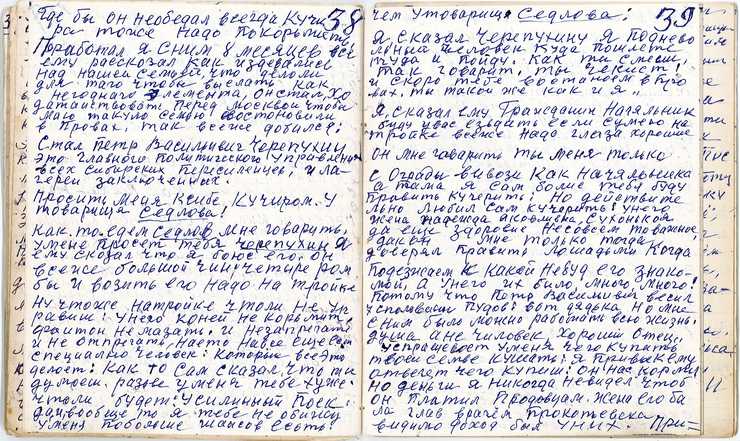 38
Где бы он необедал всегда Кучи
ра тоже надо покормить
Проработал я Сним 8 месяцев все
ему рассказал Как издевались
над нашей семьёй, что делали
для таго чтобы выслать как
негоднаго Элемента. Он стал хо
датайствовать Перед Москвой чтобы
маю такую семью! востоновили
в Правах, так всеже добился!
Стал Петр Васильивич Черепухин
это Главного Политического управления
всех Сибирских Пересиленцев, и ла-
герей заключенных.
Просить меня Ксибе, Кучиром. У
товарища Седлова!
Как то едем Седлов мне говорить,
уменя просет тебя черепухин Я
ему сказал что я боюс его, он
всеже большой чин, четыре ром
бы и возить его надо на тройке
Ну чтоже натройке чтоли не уп
равиш! Унего коней не кормить,
фаитон немазать, и Незапрегать
и не отпрегать, наето нанее еще есть
специално человек! Которы все это
делоет! Как то Сам сказал, что ты
думоеш, разве уменя тебе хуже
чтоли будет! Усиленный Паек
дам, вообще то я тебе не обижу
уменя побольше шансов есть!
39
чем утоварища Седлова!
Я, сказал Черепухину Я поднево
льный человек Куда пошлете
туда и пойду. Как ты смеиш
так говарит, ты чекист!
и скоро тебе востоновим вПрово
вах, ты такой же как и я,,
Я, сказал ему Гражданин Начяльник
буду увас ездить если сумею на
тройке всеже надо глаза хорошие
он мне говарить ты меня только
с Ограды вывози Как начяльника
а тама я сам более тебя буду
Править кучерить! Но действите
льно любил Сам кучерить! Унего
жена Надежда яковлевна, Сухонькая
да ещё здоровие Несовсем товажное,
дакон мне только тогда
доверял Править лошадьми когда
Подезжаем К какой Небуд его знако-
мой, а Унего их было, много, много!
Потому что Петр Василивич весил
Пудов! вот дядька Но мне
сним было можно работать всю жизнь.
Душа а не человек, хороший Отец,
успрашевоет уменя чего Купить
твоей семье Кушать! я Привык ему
отвечет чего купиш! Он нас кормил
но деньги я никогда невидел чтоб
он платил Продовцам. Жена его бы
ла глав врачём
видимо доход был У них. При=